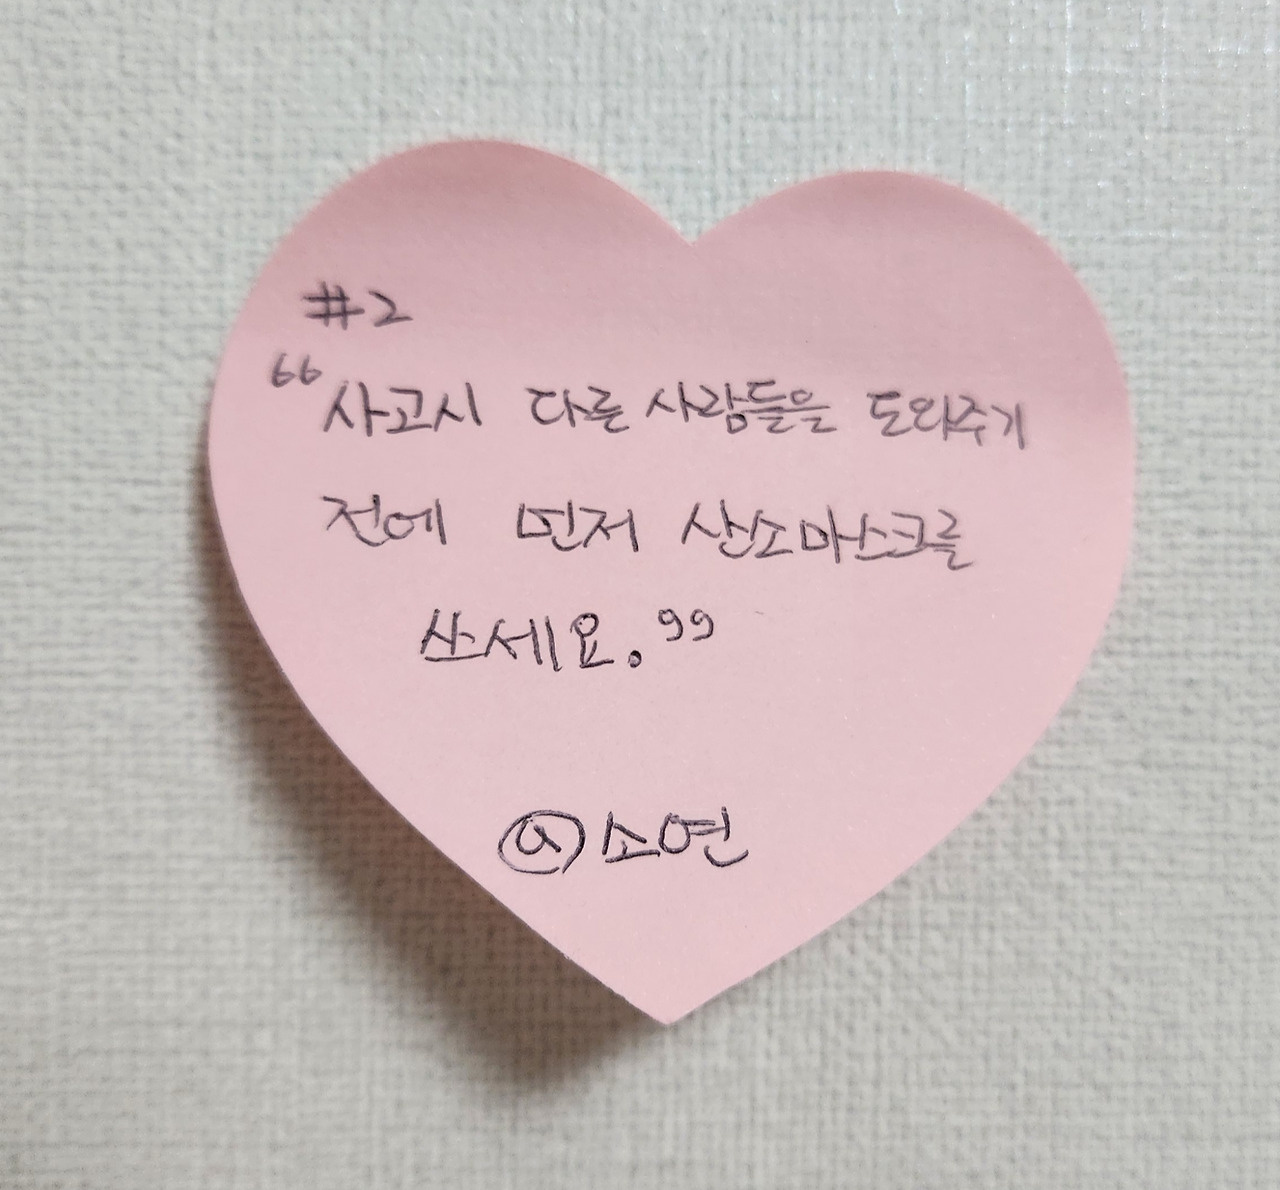 #2
“사고시 다른 사람들을 도와주기
전에 먼저 산소마스크를
쓰세요.”
@소연